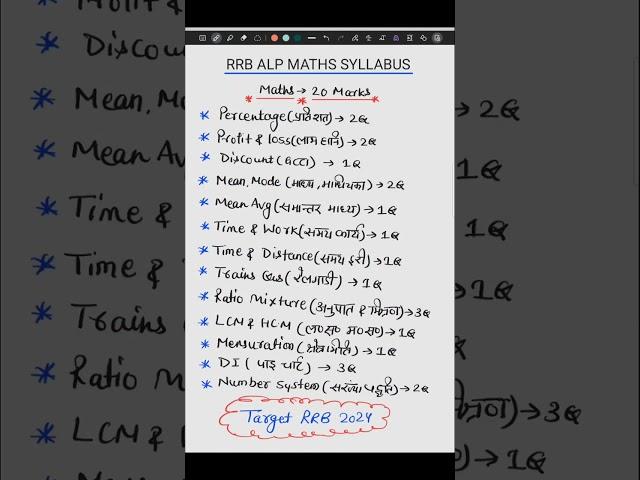 RRB ALP MATHS SYLLABUS
Maths → 20 Marks
* Percentage (प्रतिशत) → 2Q
* Profit & loss (लाभ हानि) → 2Q
* Discount (बट्टा) → 1Q
* Mean, Mode (माध्य, माध्यिका) → 2Q
* Mean Avg (समान्तर माध्य) → 1Q
* Time & Work (समय कार्य) → 1Q
* Time & Distance (समय दूरी) → 1Q
* Trains Ques (रेलगाडी) → 1Q
* Ratio Mixture (अनुपात & मिश्रण) → 3Q
* LCM & HCM (ल०स० म०स०) → 1Q
* Mensuration (क्षेत्रमिति) → 1Q
* DI (पाइ चार्ट) → 3Q
* Number System (संख्या पद्धति) → 2Q
Target RRB 2024